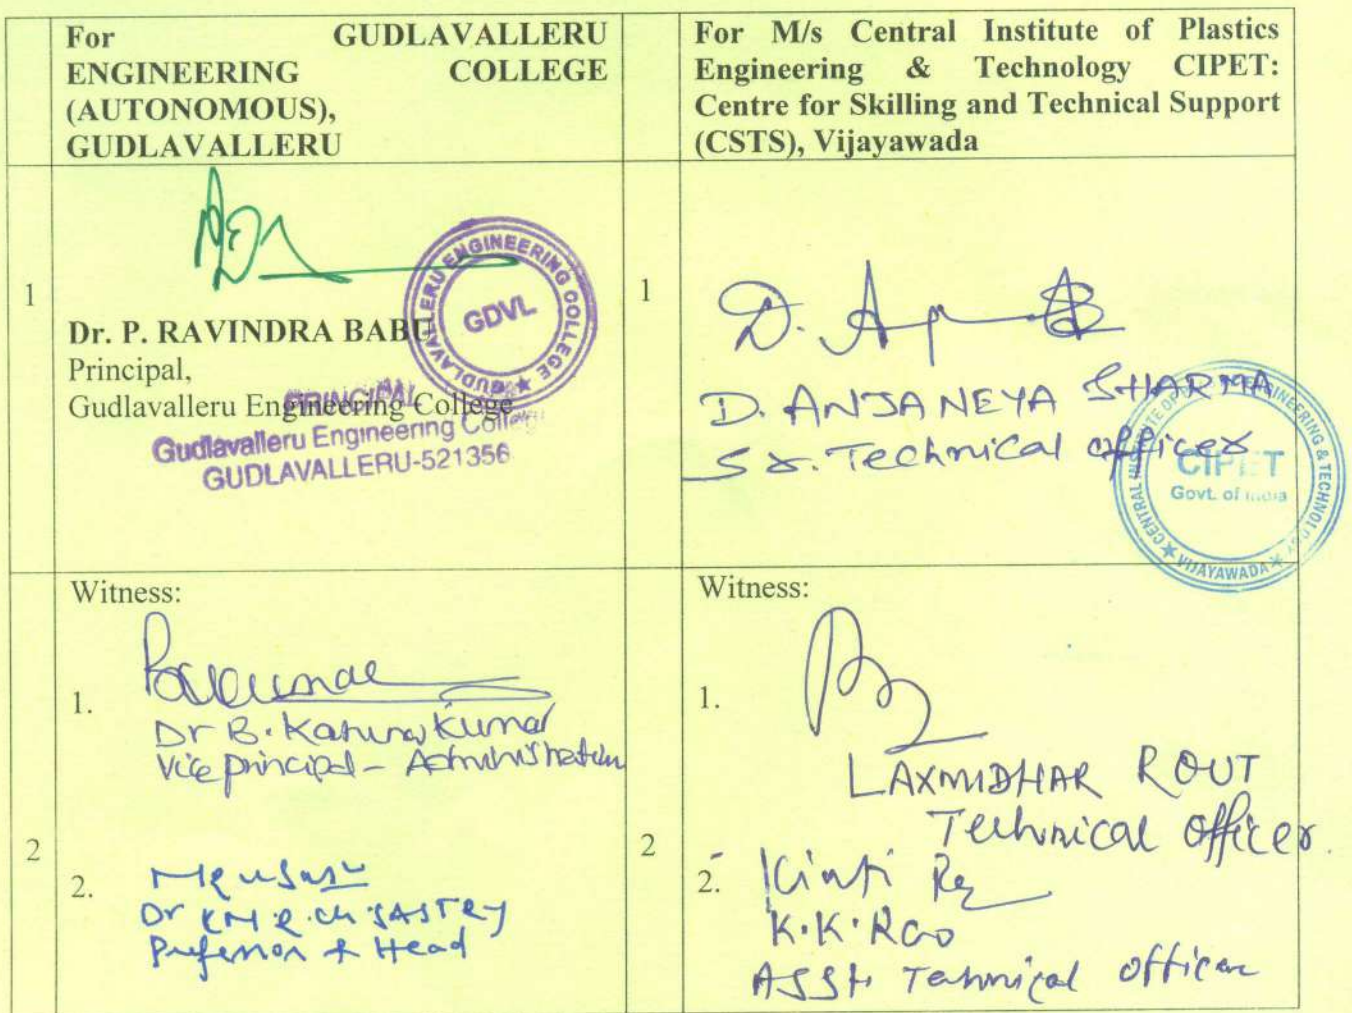 For GUDLAVALLERU
ENGINEERING COLLEGE
(AUTONOMOUS),
GUDLAVALLERU
For M/s Central Institute of Plastics
Engineering & Technology CIPET:
Centre for Skilling and Technical Support
(CSTS), Vijayawada
1
Dr. P. RAVINDRA BABU
Principal,
Gudlavalleru Engineering College
GUDLAVALLERU ENGINEERING COLLEGE
GDVL
PRINCIPAL
Gudlavalleru Engineering College
GUDLAVALLERU-521356
1
D. ANJANEYA SHARMA
Sr. Technical officer
CIPET
Govt. of India
VIJAYAWADA
2
Witness:
1.
Dr B. Karuna Kumar
Vice principal - Administration
2.
Dr
SASTRY
Professor & Head
2
Witness:
1.
LAXMIDHAR ROUT
Technical Officer.
2.
K.K. Rao
Asst Technical officer